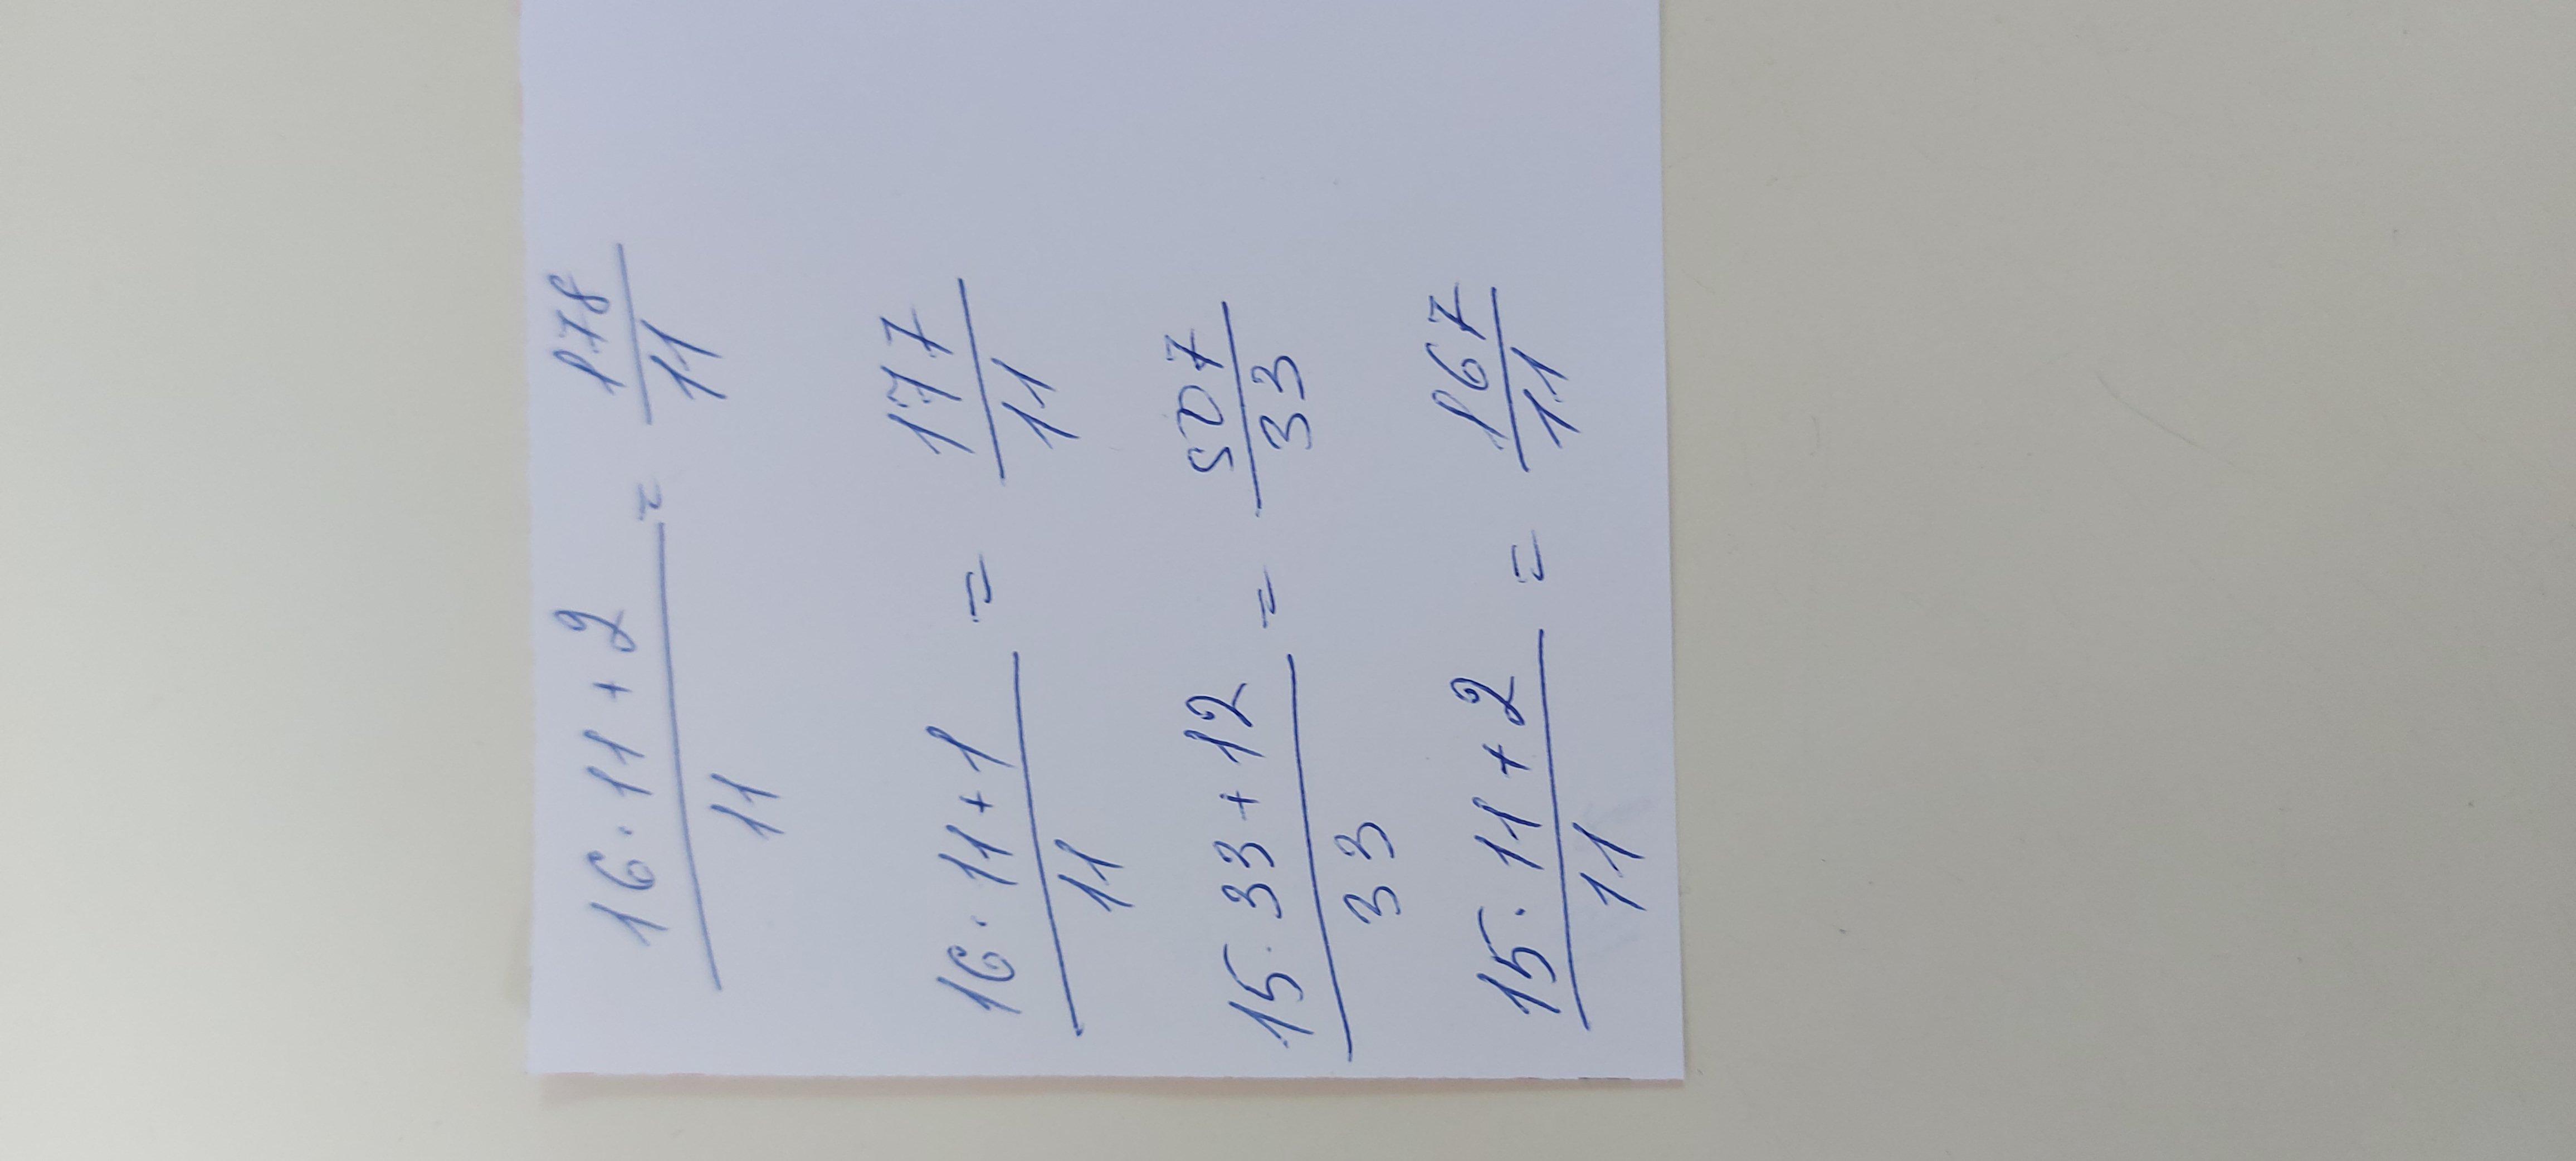 16 · 11 + 2 / 11 = 178 / 11
16 · 11 + 1 / 11 = 177 / 11
15 · 33 + 12 / 33 = 507 / 33
15 · 11 + 2 / 11 = 167 / 11